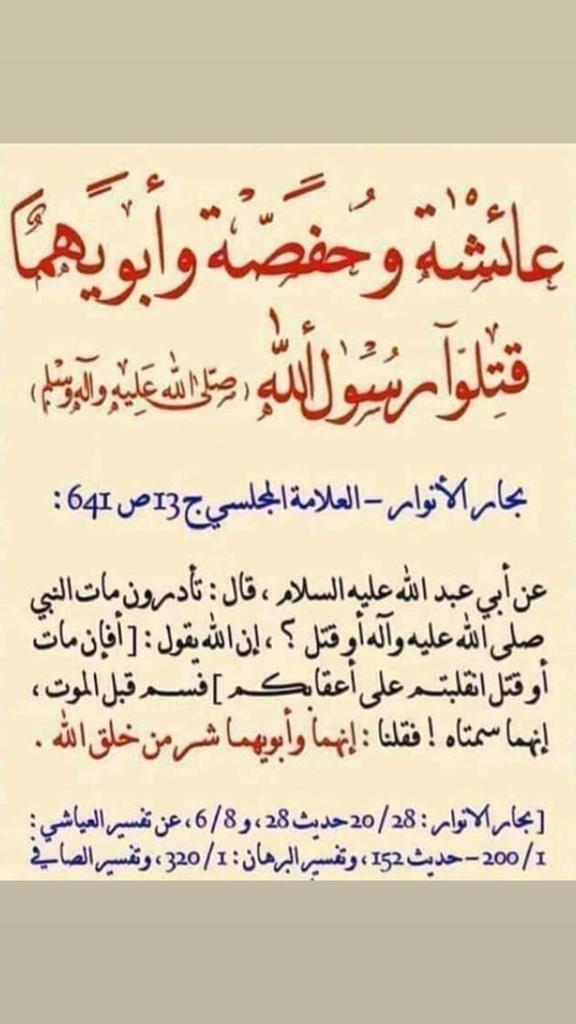 عائشة وحفصة وأبويهما
قتلوا رسول الله (صلى الله عليه وآله وسلم)
بحار الأنوار - العلامة المجلسي ج13 ص 641 :
عن أبي عبد الله عليه السلام ، قال : تأدرون مات النبي
صلى الله عليه وآله أو قتل ؟ ، إن الله يقول : [ أفإن مات
أو قتل انقلبتم على أعقابكم ] فسم قبل الموت ،
إنهما سمتاه ! فقلنا : إنهما وأبويهما شر من خلق الله .
[ بحار الأنوار : 20/28 حديث 28، و 6/8، عن تفسير العياشي :
200/1 - حديث 152، وتفسير البرهان : 320/1، وتفسير الصافي